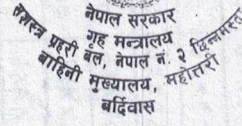 नेपाल सरकार
गृह मन्त्रालय
सशस्त्र प्रहरी बल, नेपाल नं. २ छिन्नमस्ता
बाहिनी मुख्यालय, महोत्तरी
बर्दिवास